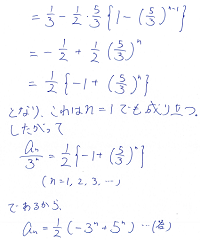 = 1/3 - 1/2 · 5/3 { 1 - (5/3)^{n-1} }
= - 1/2 + 1/2 (5/3)^n
= 1/2 { -1 + (5/3)^n }
となり、これはn=1でも成り立つ。
したがって
a_n/3^n = 1/2 { -1 + (5/3)^n }
(n=1, 2, 3, …)
であるから、
a_n = 1/2 (-3^n + 5^n) …(答)